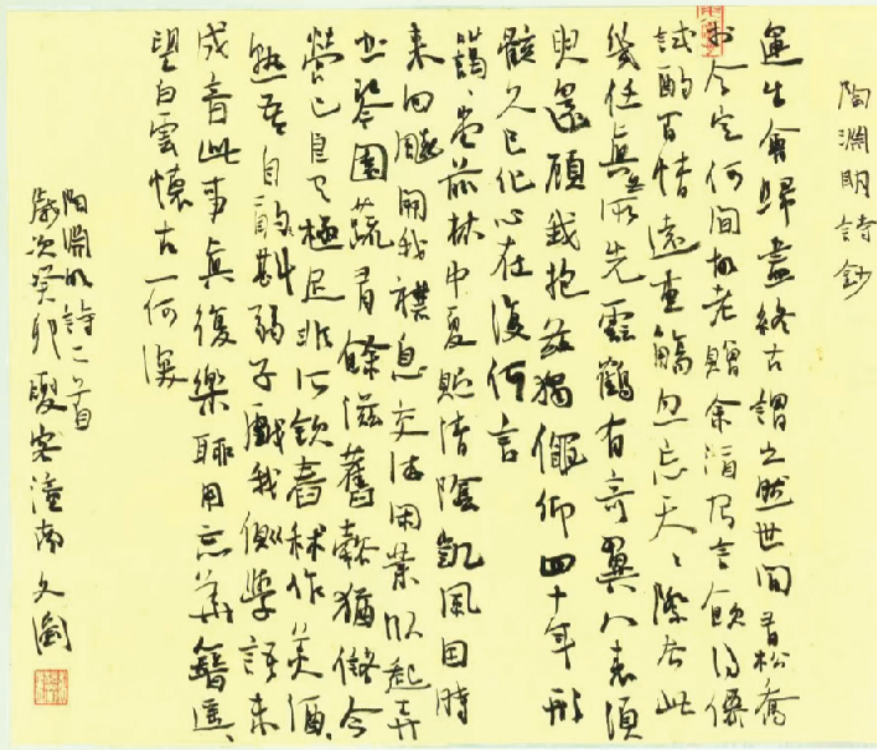 陶淵明詩鈔
運生會歸盡終古謂之然世間有松喬
於今定何間故老贈余酒乃言飲得僊
試酌百情遠重觴忽忘天天際去此
幾任真無所先雲鶴有奇翼八表須
臾還顧我抱茲獨僶俛四十年形
骸久已化心在復何言
藹藹堂前林中夏貯清陰凱風因時
來回飈開我襟息交遊閑業臥起弄
書琴園蔬有餘滋舊穀猶儲今
營己良有極足非所欽舂秫作美酒
熟吾自酌斟弱子戲我側學語未
成音此事真復樂聊用忘華簪遙遙
望白雲懷古一何深
陶淵明詩二首
歲次癸卯夏客潼南文園